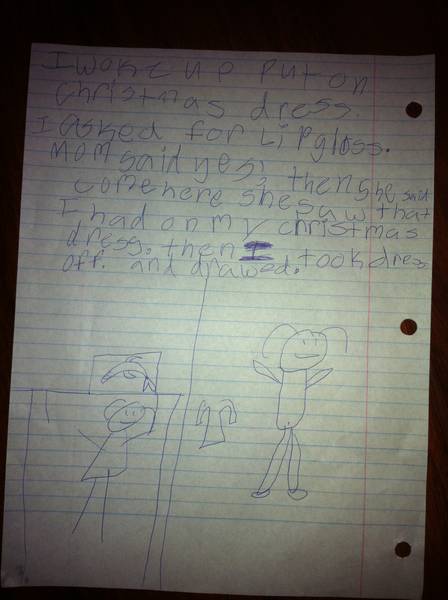 I woke up put on
christmas dress.
I asked for Lipgloss.
Mom said yes, then she said
come here she saw that
I had on my christmas
dress. then I took dress
off. and drawed.